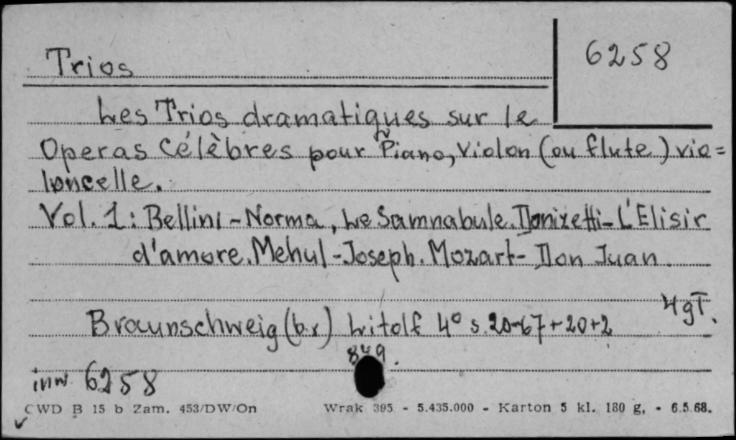 6258
Trios
Les Trios dramatiques sur le
Operas Célèbres pour Piano, Violon (ou flute) vio=
loncelle.
Vol. 1: Bellini - Norma, Le Samnabule. Donizetti - L'Elisir
d'amore. Mehul - Joseph. Mozart - Don Juan.
4 gT.
Braunschweig (b.r) Litolf 4° s. 20+67+20+2
849.
inw 6258
CWD B 15 b Zam. 453/DW/On Wrak 395 - 5.435.000 - Karton 5 kl. 180 g. - 6.5.68.